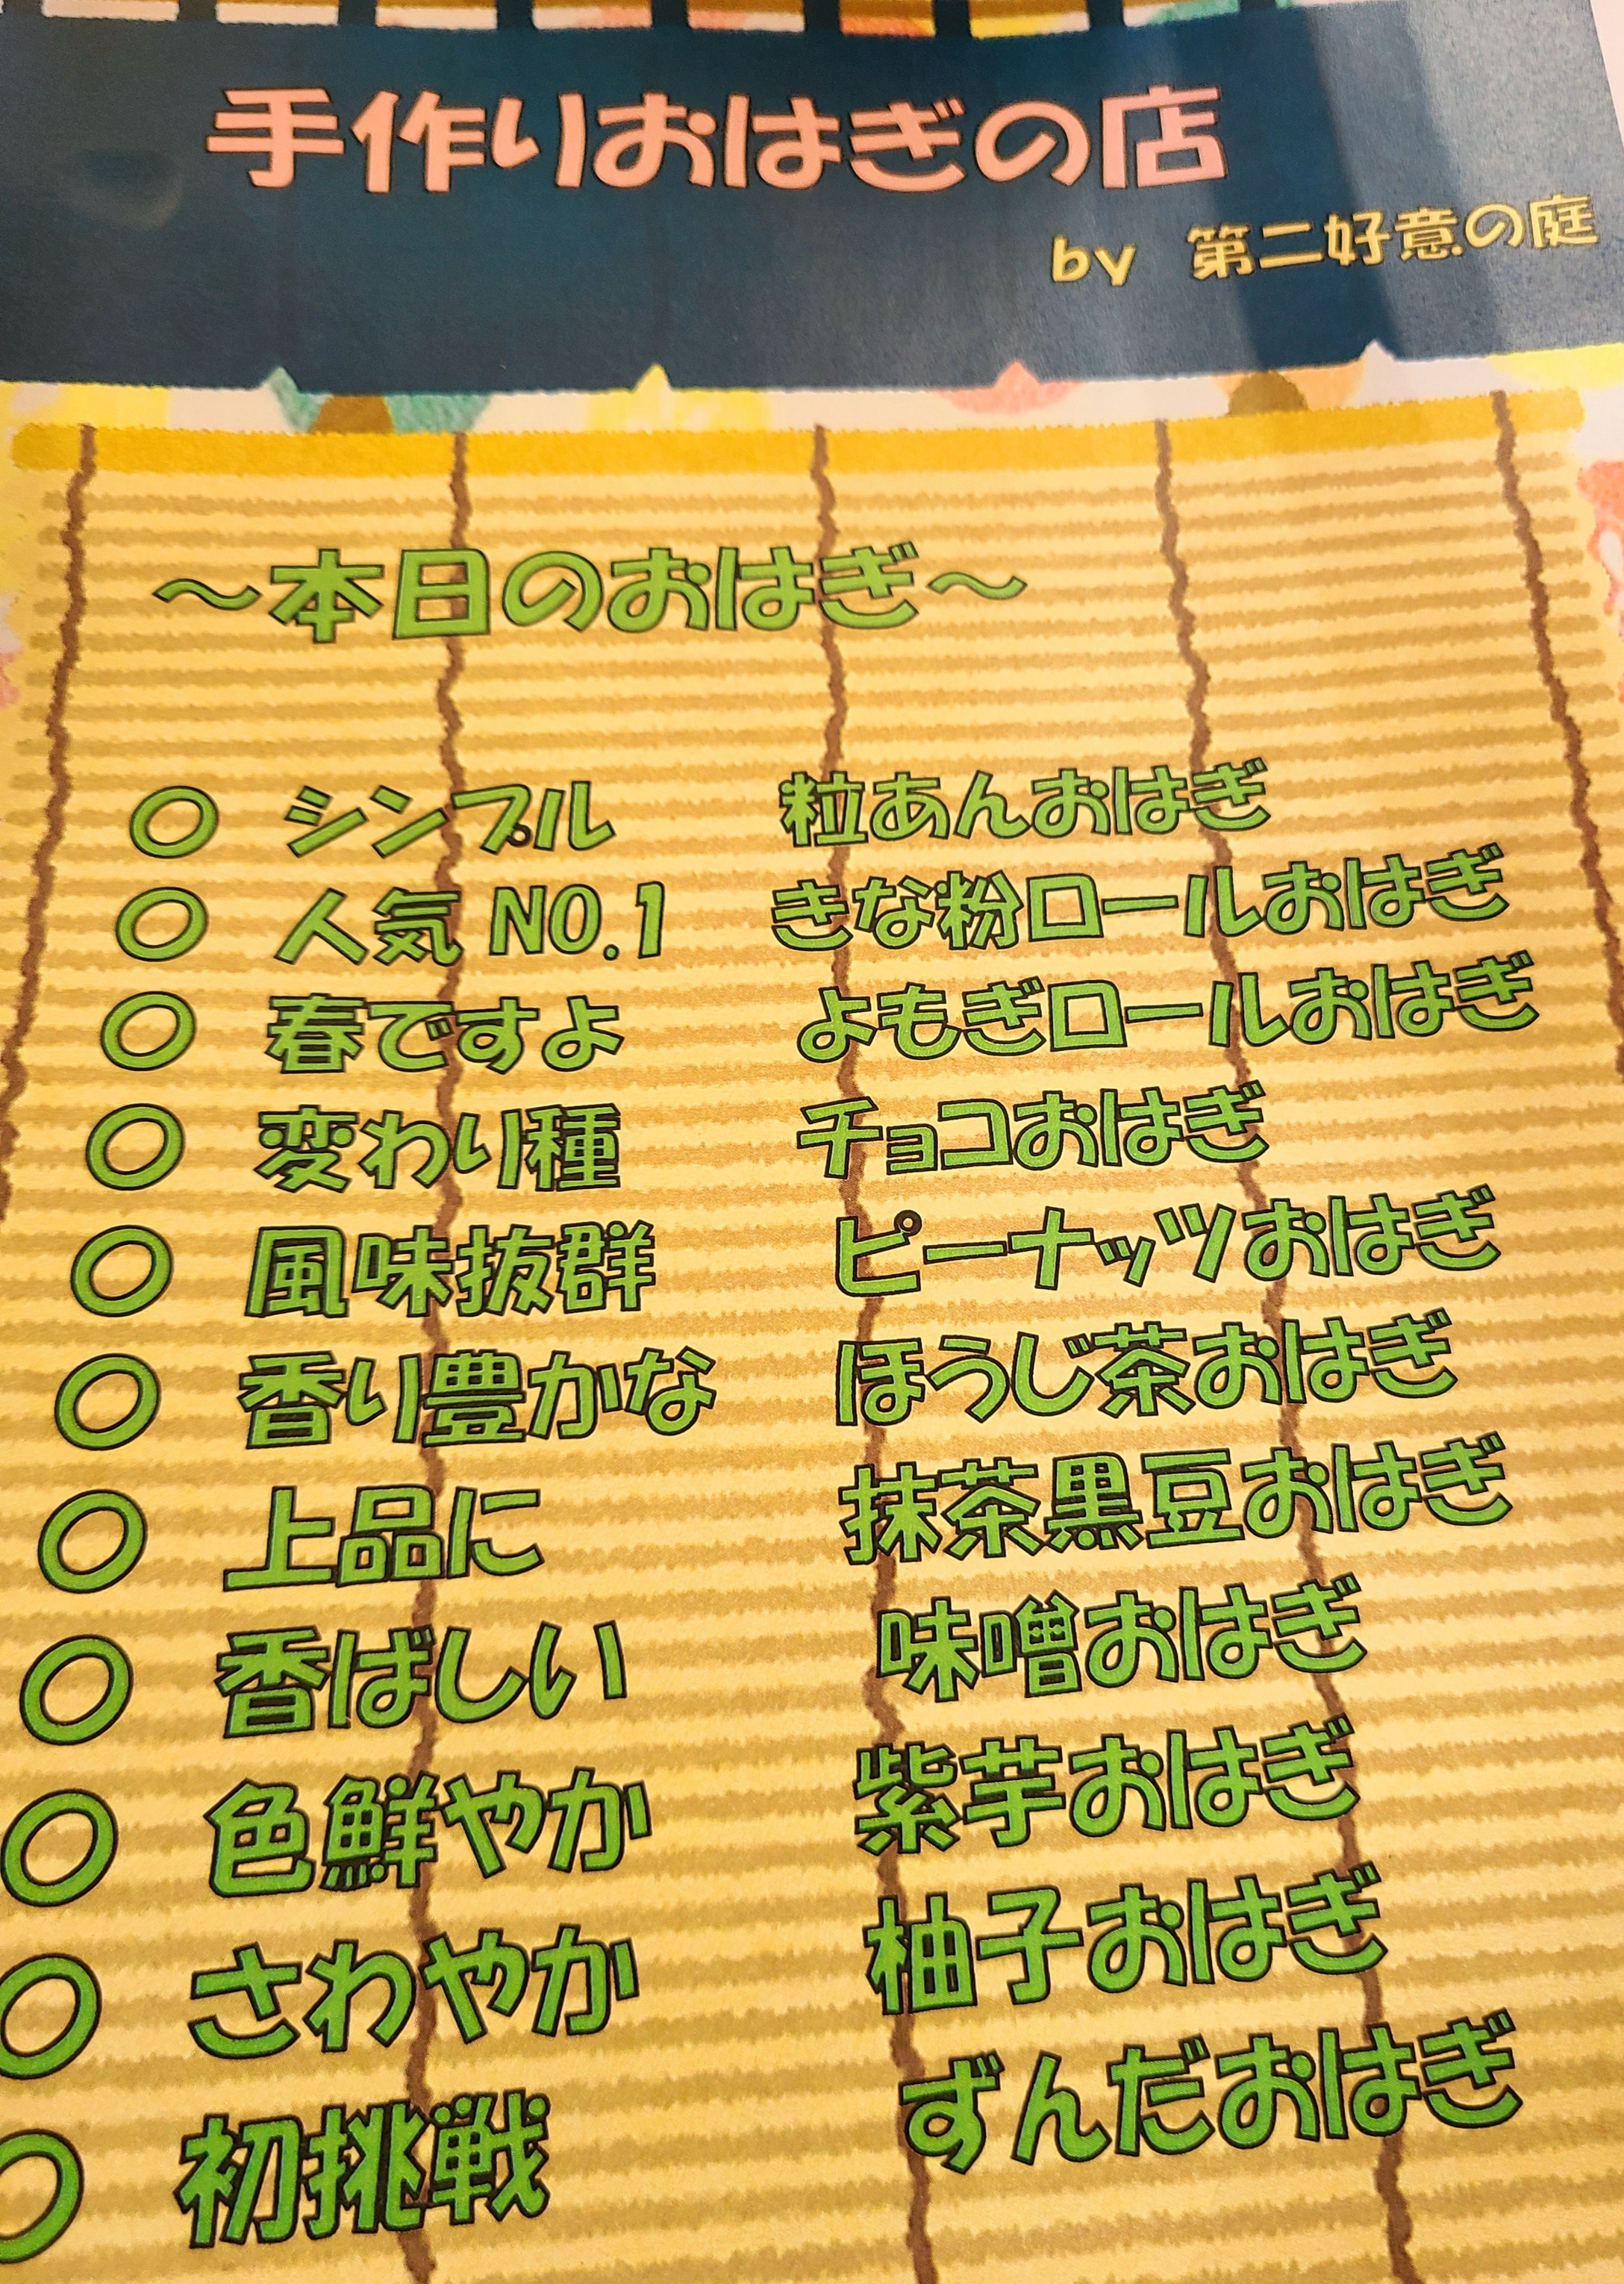 手作りおはぎの店
by 第二好意の庭
～本日のおはぎ～
○ シンプル 粒あんおはぎ
○ 人気 NO.1 きな粉ロールおはぎ
○ 春ですよ よもぎロールおはぎ
○ 変わり種 チョコおはぎ
○ 風味抜群 ピーナッツおはぎ
○ 香り豊かな ほうじ茶おはぎ
○ 上品に 抹茶黒豆おはぎ
○ 香ばしい 味噌おはぎ
○ 色鮮やか 紫芋おはぎ
○ さわやか 柚子おはぎ
○ 初挑戦 ずんだおはぎ